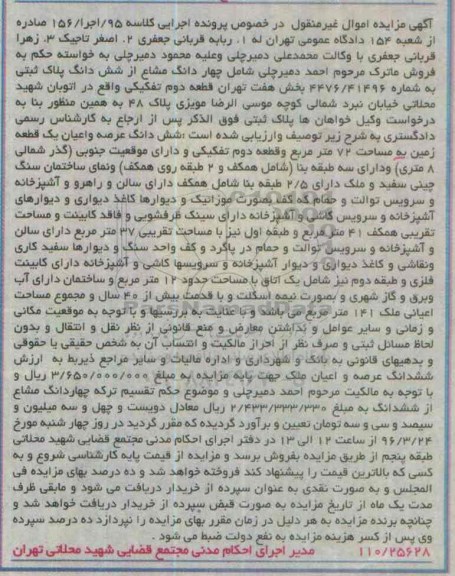 آگهی مزایده اموال غیرمنقول در خصوص پرونده اجرایی کلاسه ۹۵/اجرا/۱۵۶ صادره
از شعبه ۱۵۴ دادگاه عمومی تهران له ۱. ربابه قربانی جعفری ۲. اصغر تاجیک ۳. زهرا
قربانی جعفری با وکالت محمدعلی دمیرچلی وعلیه محمود دمیرچلی به خواسته حکم به
فروش ماترک مرحوم احمد دمیرچلی شامل چهار دانگ مشاع از شش دانگ پلاک ثبتی
به شماره ۴۴۷۶/۴۱۴۹۶ بخش هفت تهران قطعه دوم تفکیکی واقع در اتوبان شهید
محلاتی خیابان نبرد شمالی کوچه موسی الرضا مویزی پلاک ۴۸ به همین منظور بنا به
درخواست وکیل خواهان ها پلاک ثبتی فوق الذکر پس از ارجاع به کارشناس رسمی
دادگستری به شرح زیر توصیف وارزیابی شده است ؛شش دانگ عرصه واعیان یک قطعه
زمین به مساحت ۷۲ متر مربع وقطعه دوم تفکیکی و دارای موقعیت جنوبی (گذر شمالی
۸ متری) ودارای سه طبقه بنا (شامل همکف و ۲ طبقه روی همکف) ونمای ساختمان سنگ
چینی سفید و ملک دارای ۲/۵ طبقه بنا شامل همکف دارای سالن و راهرو و آشپزخانه
و سرویس توالت و حمام که کف بصورت موزائیک و دیوارها کاغذ دیواری و دیوارهای
آشپزخانه و سرویس کاشی و آشپزخانه دارای سینک ظرفشویی و فاقد کابینت و مساحت
تقریبی همکف ۴۱ متر مربع و طبقه اول نیز با مساحت تقریبی ۳۷ متر مربع دارای سالن
و آشپزخانه و سرویس توالت و حمام در پاگرد و کف واحد سنگ و دیوارها سفید کاری
ونقاشی و کاغذ دیواری و دیوار آشپزخانه و سرویسها کاشی و آشپزخانه دارای کابینت
فلزی و طبقه دوم نیز شامل یک اتاق با مساحت حدود ۱۲ متر مربع و ساختمان دارای آب
وبرق و گاز شهری و بصورت نیمه اسکلت و با قدمت بیش از ۴۰ سال و مجموع مساحت
اعیانی ملک ۱۴۱ متر مربع می باشد و با عنایت به بررسیها و با توجه به موقعیت مکانی
و زمانی و سایر عوامل و نداشتن معارض و منع قانونی از نظر نقل و انتقال و بدون
لحاظ مسائل ثبتی و صرف نظر از احراز مالکیت و انتساب آن به شخص حقیقی یا حقوقی
و بدهیهای قانونی به بانک و شهرداری و اداره مالیات و سایر مراجع ذیربط به ارزش
ششدانگ عرصه و اعیان ملک جهت پایه مزایده به مبلغ ۳/۶۵۰/۰۰۰/۰۰۰ ریال و
با توجه به مالکیت مرحوم احمد دمیرچلی و موضوع حکم تقسیم ترکه چهاردانگ مشاع
از ششدانگ به مبلغ ۲/۴۳۳/۳۳۳/۳۳۰ ریال معادل دویست و چهل و سه میلیون و
سیصد و سی و سه تومان تعیین و برآورد گردیده که مقرر گردید در روز چهار شنبه مورخ
۹۶/۳/۲۴ از ساعت ۱۲ الی ۱۳ در دفتر اجرای احکام مدنی مجتمع قضایی شهید محلاتی
طبقه پنجم از طریق مزایده بفروش برسد و مزایده از قیمت پایه کارشناسی شروع و به
کسی که بالاترین قیمت را پیشنهاد کند فروخته خواهد شد و ده درصد بهای مزایده فی
المجلس و به صورت نقدی به عنوان سپرده از خریدار دریافت می شود و مابقی ظرف
مدت یک ماه از تاریخ مزایده به صورت قبض سپرده از خریدار دریافت خواهد شد و
چنانچه برنده مزایده به هر دلیل در زمان مقرر بهای مزایده را نپردازد ده درصد سپرده
وی پس از کسر هزینه مزایده به نفع دولت ضبط می شود .
۱۱۰/۲۵۶۲۸ مدیر اجرای احکام مدنی مجتمع قضایی شهید محلاتی تهران